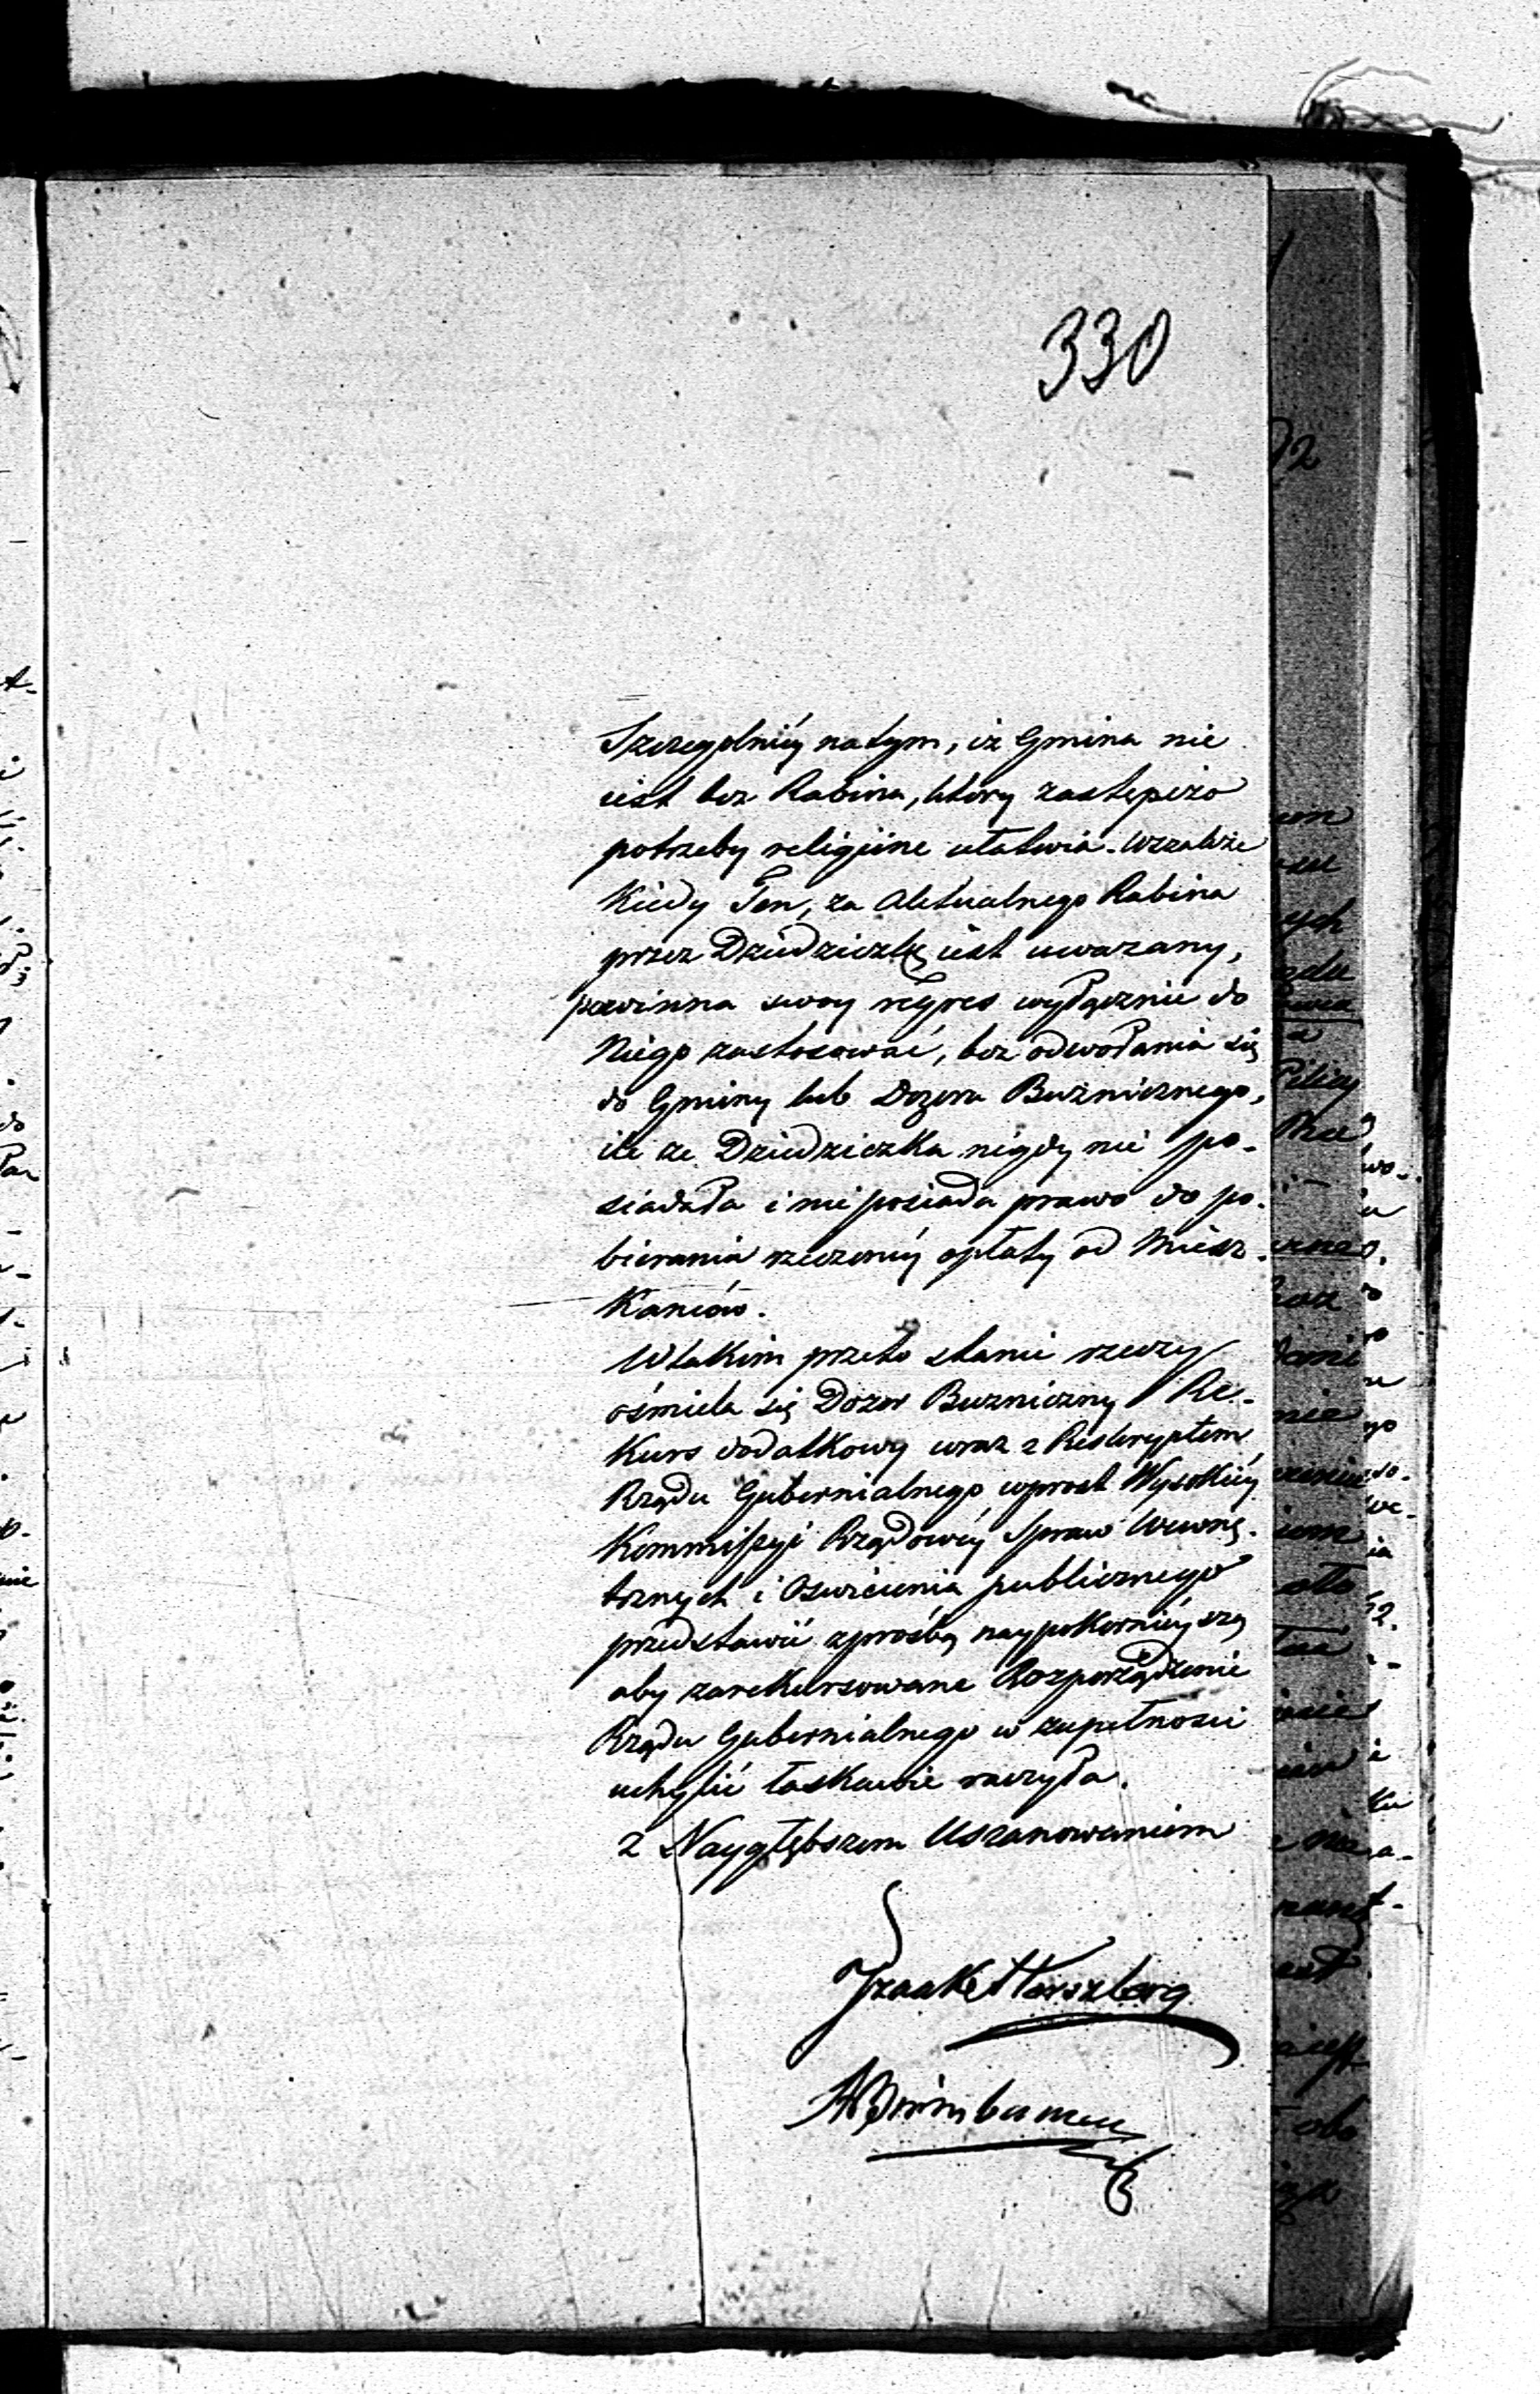 330
Szczególniéy na tym, iż Gmina nie
iest bez Rabina, który zastępczo
potrzeby religiine ułatwia. wszakże
Kiedy Ten, za Aktualnego Rabina
przez Dziedziczkę iest uwazany,
powinna swoy regres wyłącznie do
Niego zastosować, bez odwołania się
do Gminy lub Dozoru Bużnicznego,
ile ze Dziedziczka nigdy nie po-
siadała i nie posiada prawo do po-
bierania rzeczoney opłaty od Miesz-
Kancow.
W takim przeto stanie rzeczy
ośmiela się Dozor Buzniczny Re-
Kurs dodatkowy wraz z Reskryptem
Rządu Gubernialnego wprost Wysokiéy
Kommissyi Rządowéy Spraw Wewnę-
trznych i Oswiecenia publicznego
przedstawić z prośbą naypokornieyszą
aby zarekursowane Rozporządzenie
Rządu Gubernialnego w zupełnosci
uchylić łaskawie raczyła.
z Naygłębszem Uszanowaniem
Izaak Herszberg